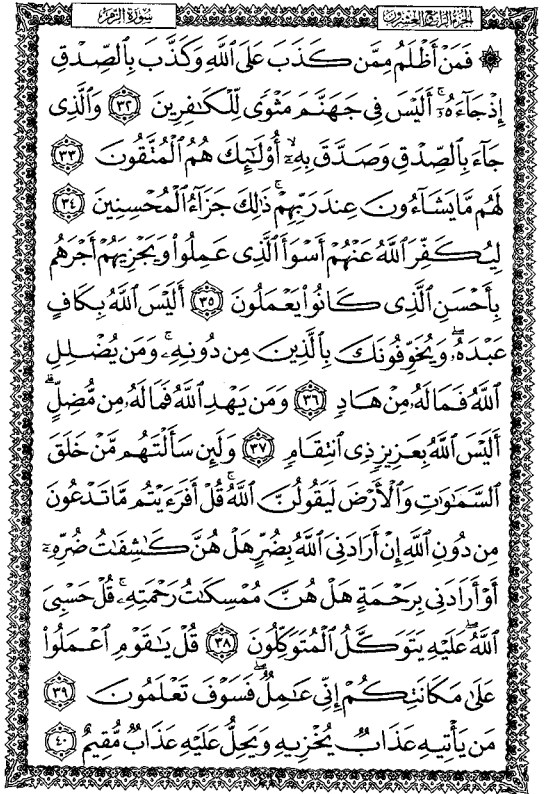 سُورَةُ الزُّمَرِ
الجُزْءُ الرَّابِعُ وَالعِشْرُونَ
۞ فَمَنْ أَظْلَمُ مِمَّن كَذَبَ عَلَى ٱللَّهِ وَكَذَّبَ بِٱلصِّدْقِ
إِذْ جَآءَهُۥٓ ۚ أَلَيْسَ فِى جَهَنَّمَ مَثْوًى لِّلْكَـٰفِرِينَ ٣٢ وَٱلَّذِى
جَآءَ بِٱلصِّدْقِ وَصَدَّقَ بِهِۦٓ ۙ أُو۟لَـٰٓئِكَ هُمُ ٱلْمُتَّقُونَ ٣٣
لَهُم مَّا يَشَآءُونَ عِندَ رَبِّهِمْ ۚ ذَٰلِكَ جَزَآءُ ٱلْمُحْسِنِينَ ٣٤
لِيُكَفِّرَ ٱللَّهُ عَنْهُمْ أَسْوَأَ ٱلَّذِى عَمِلُوا۟ وَيَجْزِيَهُمْ أَجْرَهُم
بِأَحْسَنِ ٱلَّذِى كَانُوا۟ يَعْمَلُونَ ٣٥ أَلَيْسَ ٱللَّهُ بِكَافٍ
عَبْدَهُۥ ۖ وَيُخَوِّفُونَكَ بِٱلَّذِينَ مِن دُونِهِۦ ۚ وَمَن يُضْلِلِ
ٱللَّهُ فَمَا لَهُۥ مِنْ هَادٍ ٣٦ وَمَن يَهْدِ ٱللَّهُ فَمَا لَهُۥ مِن مُّضِلٍّ ۗ
أَلَيْسَ ٱللَّهُ بِعَزِيزٍ ذِى ٱنتِقَامٍ ٣٧ وَلَئِن سَأَلْتَهُم مَّنْ خَلَقَ
ٱلسَّمَـٰوَٰتِ وَٱلْأَرْضَ لَيَقُولُنَّ ٱللَّهُ ۚ قُلْ أَفَرَءَيْتُم مَّا تَدْعُونَ
مِن دُونِ ٱللَّهِ إِنْ أَرَادَنِىَ ٱللَّهُ بِضُرٍّ هَلْ هُنَّ كَـٰشِفَـٰتُ ضُرِّهِۦٓ
أَوْ أَرَادَنِى بِرَحْمَةٍ هَلْ هُنَّ مُمْسِكَـٰتُ رَحْمَتِهِۦ ۚ قُلْ حَسْبِىَ
ٱللَّهُ ۖ عَلَيْهِ يَتَوَكَّلُ ٱلْمُتَوَكِّلُونَ ٣٨ قُلْ يَـٰقَوْمِ ٱعْمَلُوا۟
عَلَىٰ مَكَانَتِكُمْ إِنِّى عَـٰمِلٌ ۖ فَسَوْفَ تَعْلَمُونَ ٣٩
مَن يَأْتِيهِ عَذَابٌ يُخْزِيهِ وَيَحِلُّ عَلَيْهِ عَذَابٌ مُّقِيمٌ ٤٠